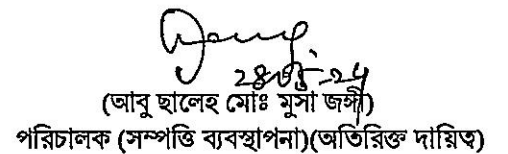 (আবু ছালেহ মোঃ মুসা জঙ্গী)
পরিচালক (সম্পত্তি ব্যবস্থাপনা)(অতিরিক্ত দায়িত্ব)